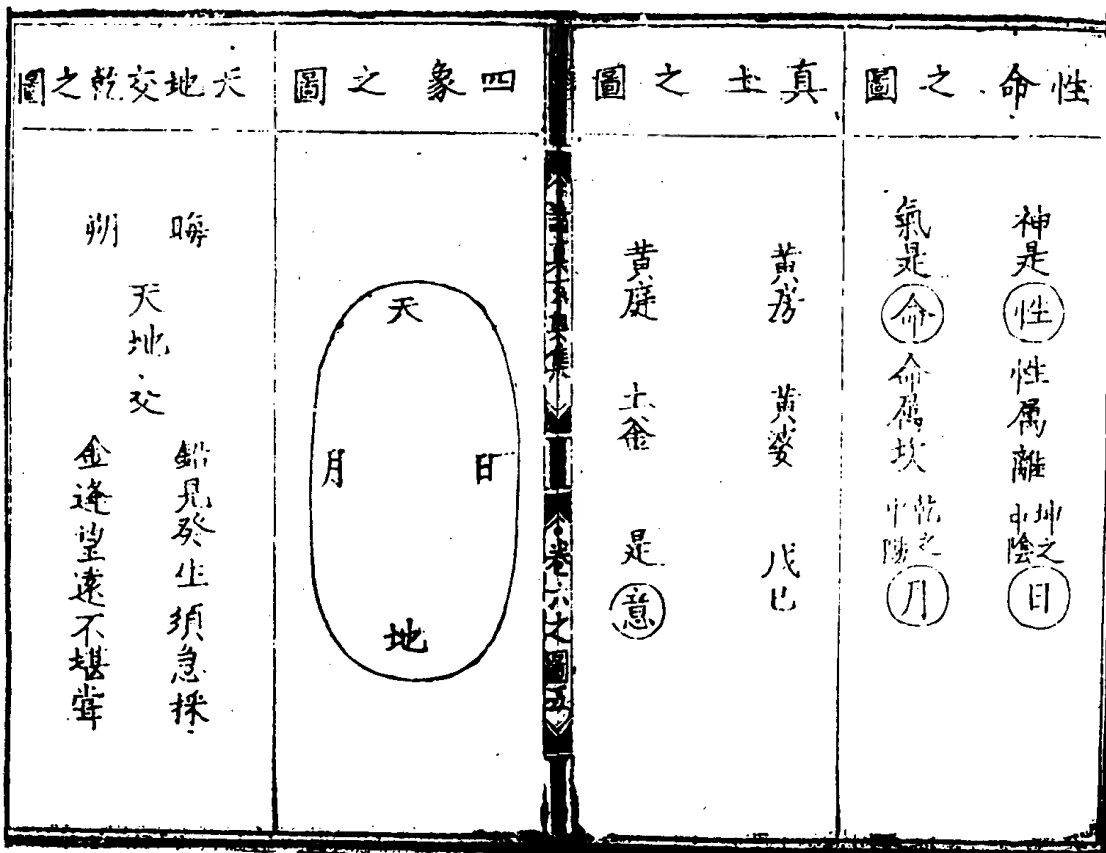 性命之圖
神是性性属離坤之中陰日
氣是命命属坎乾之中陽月
真土之圖
黄房 黄婆 戊己
黄庭 土釜 是意
諸真玄奥集 卷六之圖五
四象之圖
天
日
月
地
天地交乾之圖
晦
朔
天地交
鉛見癸生須急採
金逢望遠不堪嘗